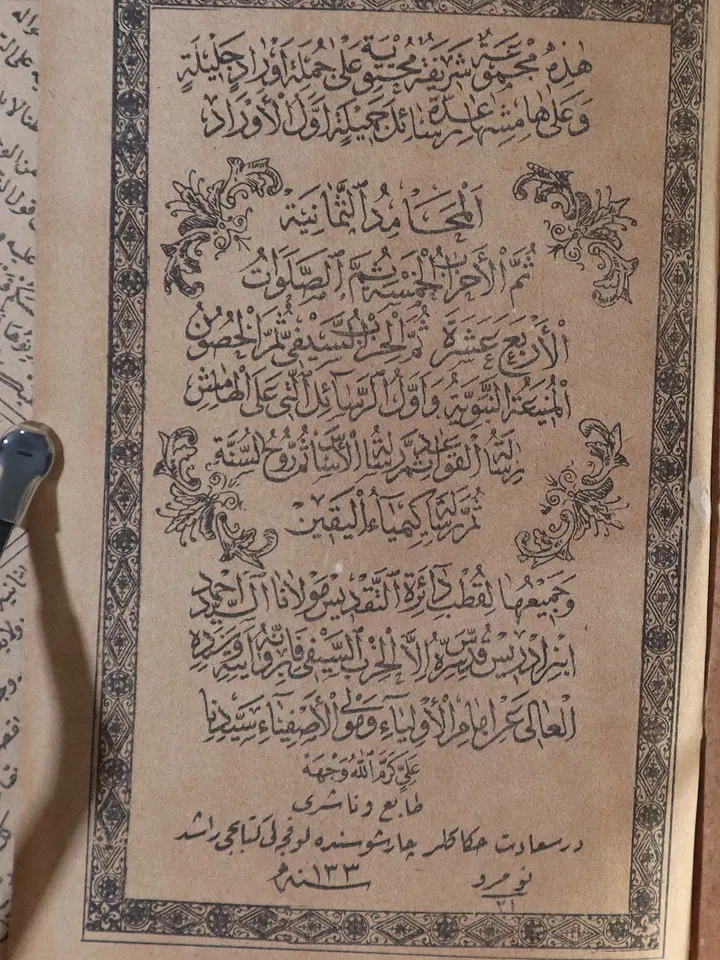 هٰذِهِ مَجْمُوعَةٌ شَرِيفَةٌ مُحْتَوِيَةٌ عَلٰى جُمْلَةِ اَوْرَادٍ جَلِيْلَةٍ
وَعَلٰى هَامِشِهَا عِدَّةُ رَسَائِلَ جَمِيْلَةٍ اَوَّلُ الْأَوْرَادِ
اَلْمَحَامِدُ الثَّمَانِيَةُ
ثُمَّ الْأَحْزَابُ الْخَمْسَةُ ثُمَّ الصَّلَوَاتُ
الْأَرْبَعَ عَشَرَةَ ثُمَّ الْحِزْبُ السَّيْفِيُّ ثُمَّ الْحُصُونُ
الْمَنِيعَةُ النَّبَوِيَّةُ وَاَوَّلُ الرَّسَائِلِ الَّتِي عَلَى الْهَامِشِ
رِسَالَةُ الْقَوَاعِدِ ثُمَّ رِسَالَةُ الْأَسَاسِ ثُمَّ رُوحُ السُّنَّةِ
ثُمَّ رِسَالَةُ كِيمْيَاءِ الْيَقِينِ
وَجَمِيْعُهَا لِقُطْبِ دَائِرَةِ التَّقْدِيسِ مَوْلَانَا السَّيِّد اَحْمَد
ابْنِ اِدْرِيسَ قُدِّسَ سِرُّهُ اِلَّا الْحِزْبَ السَّيْفِيَّ فَاِنَّهُ بِرِوَايَتِهِ وَسَنَدِهِ
الْعَالِى عَنْ اِمَامِ الْأَوْلِيَاءِ وَمَوْلَى الْأَصْفِيَاءِ سَيِّدِنَا
عَلِيٍّ كَرَّمَ اللّٰهُ وَجْهَهُ
طابع وناشرى
درسعادت حكاكلر چارشوسنده لوفچه لى كتابجى راشد
نومرو ٢١ سنه ١٣٣